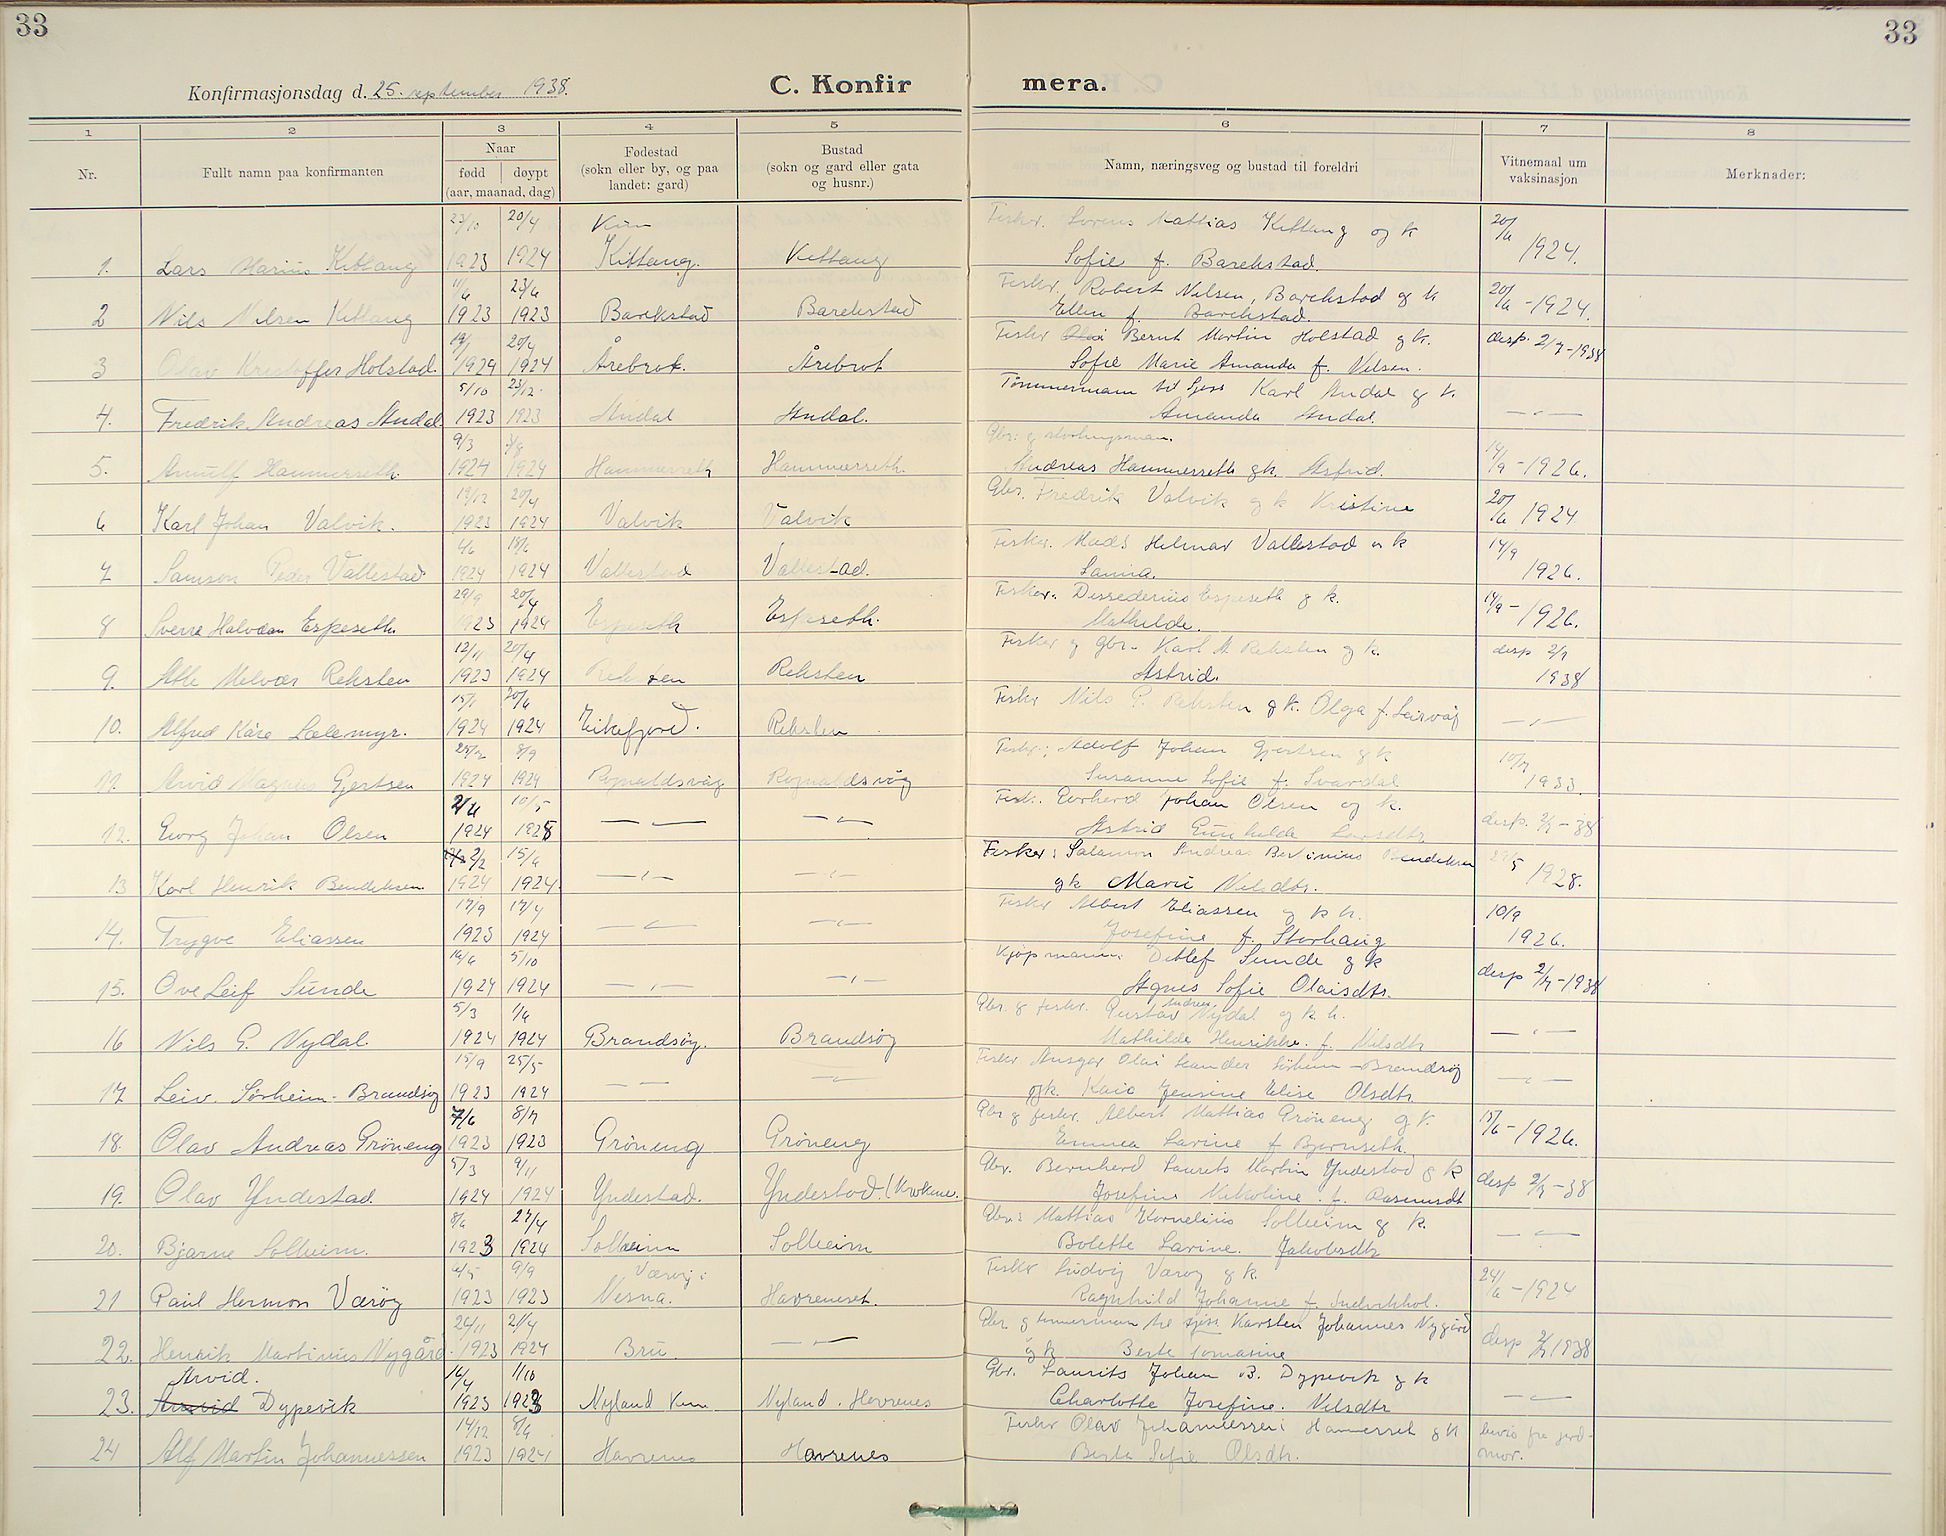 33
33
Konfirmasjonsdag d. 25. september 1938.
C. Konfir mera.
1 2 3 4 5 6 7 8
Nr. Fullt namn paa konfirmanten Naar Fødestad Bustad Namn, næringsveg og bustad til foreldri Vitnemaal um vaksinasjon Merknader:
født døypt (sokn eller by, og paa landet: gard) (sokn og gard eller gata og husnr.)
(aar, maanad, dag)
23/10 20/4 Kinn Fisker. Sorens Mattias Kittang og k 20/6
1. Lars Marius Kittang 1923 1924 Kittang. Kittang Sofie f. Barekstad. 1924.
11/6 23/6 Fisker. Robert Nilsen, Barekstad og k 20/6
2 Nils Nilsen Kittang 1923 1923 Barekstad Barekstad Ellen f. Barekstad. -1924.
19/1 20/4 Fisker Bernt Martin Holstad og k. desp. 2/7-1938
3 Olav Kristoffer Holstad. 1924 1924 Årebrot. Årebrot Sofie Marie Amanda f. Nilsen.
5/10 23/12. Tømmermann til sjøss Karl Indal og k.
4. Fredrik Andreas Indal 1923 1923 Indal Indal. Amanda Indal. —"—
9/3 Gbr. og stortingsman. 14/9
5. Arnulf Hammerseth. 1924 1924 Hammerseth Hammerseth. Andreas Hammerseth og k. Astrid. -1926.
19/12 20/4 Gbr. Fredrik Valvik og k Kristine 20/6
6 Karl Johan Valvik. 1923 1924 Valvik Valvik 1924
4/6 18/6 Fisker. Mads Helmar Vallestad og k 14/9
7 Samson Peder Vallestad 1924 1924 Vallestad Vallestad. Sanna. 1926.
29/9 20/4 Fisker. Desiderius Espeseth og k. 14/9-
8 Sverre Halvdan Espeseth. 1923 1924 Espeseth Espeseth. Mathilde. 1926.
12/11 20/4 Fisker og gbr. Karl M Reksten og k. desp 2/7
9. Atle Melvær Reksten 1923 1924 Reksten Reksten Astrid. 1938
15/1 20/6 Fisker Nils P. Reksten og k. Olga f. Leirvåg
10. Alfred Kåre Lælemyr. 1924 1924 Eikefjord. Reksten —"—
8/9 Fisker; Adolf Johan Gjertsen og k 10/9
11. Arvid Magnus Gjertsen 1924 1924 Rognaldsvåg Rognaldsvåg Susanne Sofie f. Svardal 1933.
2/4 10/5 Fisk. Evorherd Johan Olsen og k.
12. Georg Johan Olsen 1924 1925 —"— —"— Astrid Gunhilde Larsdtr desp. 2/7-38
2/2 15/6 Fisker: Salamon Andreas Bertinius Bendiksen
13 Karl Henrik Bendiksen 1924 1924 —"— —"— og k Marie Nilsdtr. 1928.
17/9 17/4 Fisker Albert Eliassen og k h. 10/9
14. Trygve Eliassen 1923 1924 —"— —"— Josefine f. Storhaug 1926.
16/6 5/10 Kjøpmann: Detlef Sunde og k desp 2/7-1938
15. Ove Leif Sunde 1924 1924 —"— —"— Agnes Sofie Olaisdtr.
5/3 1/6 Gbr. og fisker. Gustav Andreas Nydal og k. h.
16 Nils G. Nydal 1924 1924 Brandsøy. Brandsøy Mathilde Henrikke. f. Nilsdtr —"—
15/9 25/5 Fisker Ansgar Olai Leander Sørheim-Brandsøy
17. Leiv Sørheim-Brandsøy 1923 1924 —"— —"— og k. Kaia Jensine Elise Olsdtr —"—
7/6 8/7 Gbr og fisker. Albert Mattias Grøneng og k.
18. Olav Andreas Grøneng 1923 1923 Grøneng Grøneng Emmea Larine f Bjørnseth. 15/6-1926.
5/3 9/11 Gbr. Bernherd Laurits Martin Yndestad og k
19. Olav Yndestad 1924 1924 Yndestad. Yndestad. (Krokane. Josefine Nikoline. f. Rasmusdt desp 2/7-38
8/6 27/4 Gbr: Mattias Kornelius Solheim og k.
20. Bjarne Solheim. 1923 1924 Solheim Solheim Bolette Larine. Jakobsdtr —"—
4/5 9/9 Værøy i Fisker Ludvig Værøy og k. 24/6
21 Paul Hermon Værøy 1923 1923 Nesna. Havreneset. Ragnhild Johanne f. -1924
24/11 21/4 Gbr. og tømmerman til sjøss Karsten Johannes Nygård
22. Henrik Martinius Nygård. 1923 1924 Bru —"— og k Berte Tomasine desp 2/7 1938
Arvid. 16/4 1/10 Gbr. Laurits Johan B. Dypevik og k
23. Dypevik 1923 1923 Nyland Kinn Nyland. Havrenes Charlotte Josefine. Nilsdtr —"—
14/12 8/6 Fisker Olav Johannessen: Hammerset og k bevis fra jord-
24 Alf Martin Johannessen 1923 1924 Havrenes Havrenes Berta Sofie Olsdtr. mor.